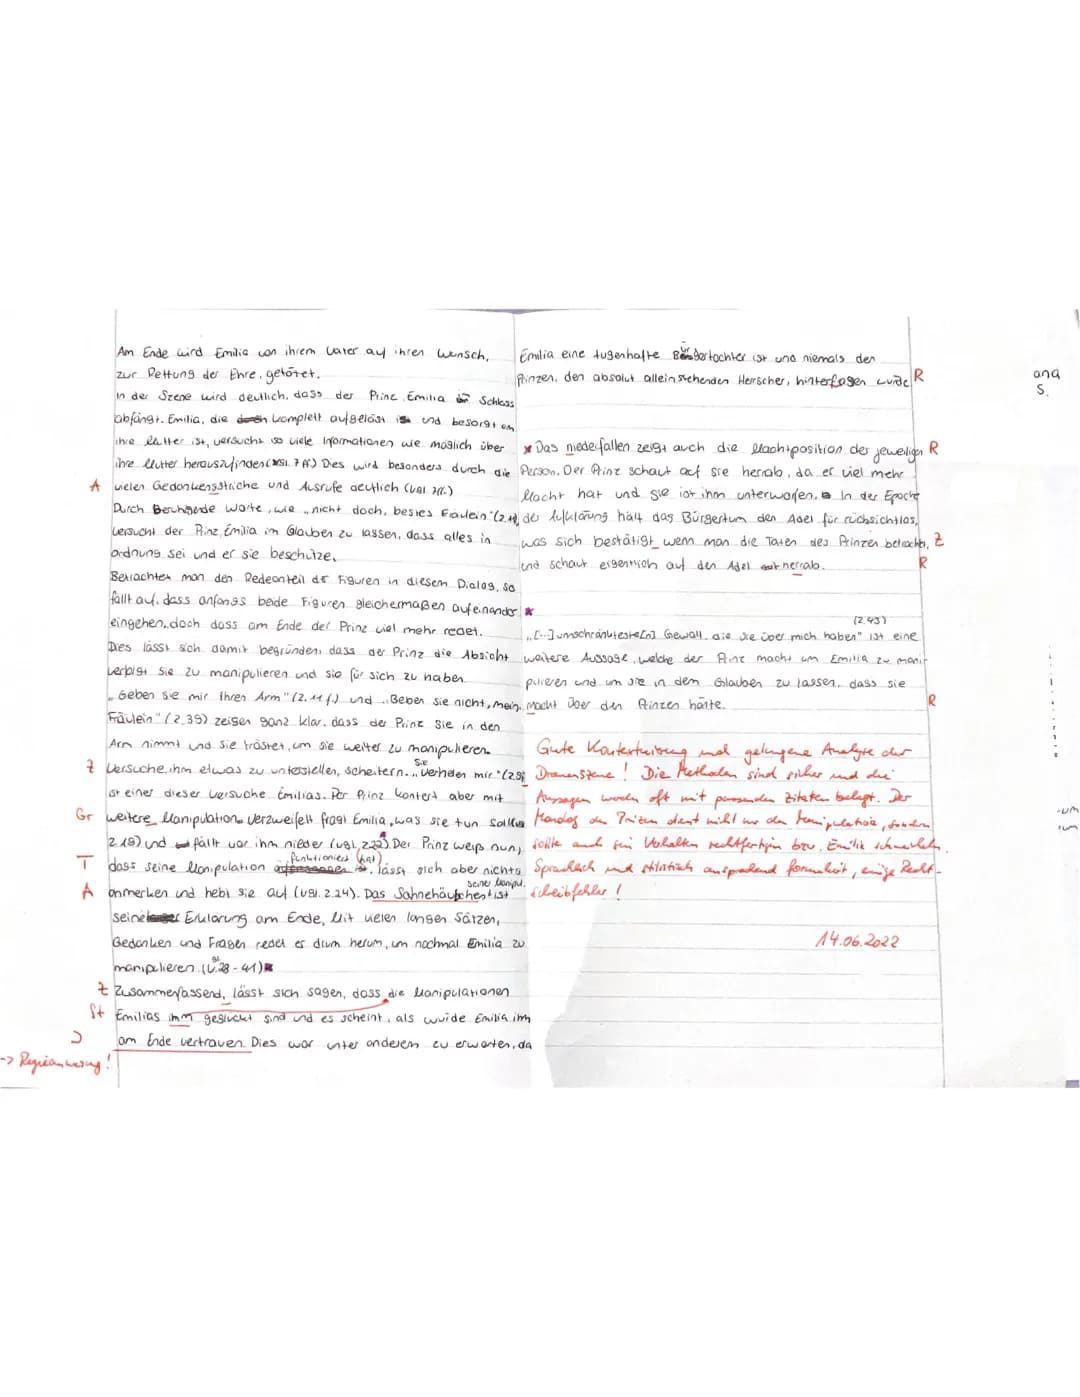 Am Ende wird Emilia von ihrem Vater auf ihren Wunsch,
zur Rettung der Ehre, getötet.
In der Szene wird deutlich, dass der Prinz Emilia Schloss
abfängt. Emilia, die komplett aufgelöst und besorgt um
ihre Mutter ist, versucht so viele Informationen wie möglich über
ihre Mutter herauszufinden (vgl. 7 ff.) Dies wird besonders durch die
A vielen Gedankensstriche und Ausrufe deutlich (vgl. 7ff.)
Durch Beruhigende Worte, wie „nicht doch, bestes Fräulein"
versucht der Prinz, Emilia im Glauben zu lassen, dass alles in
ordnung sei und er sie beschütze.
Betrachten man den Redeanteil der Figuren in diesem Dialog, so
fällt auf, dass anfangs beide Figuren gleichermaßen aufeinander
eingehen, doch dass am Ende der Prinz viel mehr redet.
Dies lässt sich damit begründen, dass der Prinz die Absicht
verfolgt Sie zu manipulieren und sie für sich zu haben
„Geben sie mir Ihren Arm" (Z.11f.) und „Beben sie nicht, mein
Fräulein" (Z.39) zeigen ganz klar, dass der Prinz Sie in den
Arm nimmt und Sie tröstet, um sie weiter zu manipulieren.
Sie
Z Versuche ihm etwas zu unterstellen, scheitern. „Verhden mir"
ist einer dieser Versuche Emilias. Der Prinz kontert aber mit
Gr weitere Manipulation. Verzweifelt fragt Emilia, was sie tun solle
Z.19) und fällt vor ihm nieder (vgl. Z.22). Der Prinz weiß nun,
funktioniert (hat)
T dass seine Manipulation, lässt sich aber nichts
seiner Manipul.
A anmerken und hebt sie auf (vgl. Z.24). Das Sahnehäubchen ist
seine Erklärung am Ende. Mit vielen langen Sätzen,
Gedanken und Fragen redet er drum herum, um nochmal Emilia zu
manipulieren. (28-41)*
Z Zusammenfassend, lässt sich sagen, dass die Manipulationen
St Emilias ihm geglückt sind und es scheint, als würde Emilia ihm
am Ende vertrauen. Dies war unter anderem zu erwarten, da
-> Regieanweisung!
Emilia eine tugenhafte Bürgertochter ist und niemals den
Prinzen, den absolut alleinstehenden Herrscher, hinterfagen würde R
* Das niederfallen zeigt auch die Machtposition der jeweiligen R
Person. Der Prinz schaut auf sie herrab, da er viel mehr
Macht hat und sie ist ihm unterworfen. In der Epoche
der Aufklärung hält das Bürgertum den Adel für rücksichtlos,
was sich bestätigt wenn man die Taten des Prinzen betrachtet, Z
und schaut eigentlich auf den Adel herrab. R
(Z.43)
„[...] umschränkteste[n] Gewalt, die sie über mich haben" ist eine
weitere Aussage, welche der Prinz macht um Emilia zu mani-
pulieren und um sie in dem Glauben zu lassen, dass sie
macht über den Prinzen hätte. R
Gute Kontextuierung und gelungene Analyse der
Dramenszene! Die Methoden sind sicher und die
Aussagen werden oft mit passenden Zitaten belegt. Der
Monolog des Prinzen dient nicht nur der Manipulation, sondern
sollte auch sein Verhalten rechtfertigen bzw. Emilia schmeicheln.
Sprachlich und stilistisch ansprechend formuliert, einige Recht-
schreibfehler!
14.06.2022
ana
S.